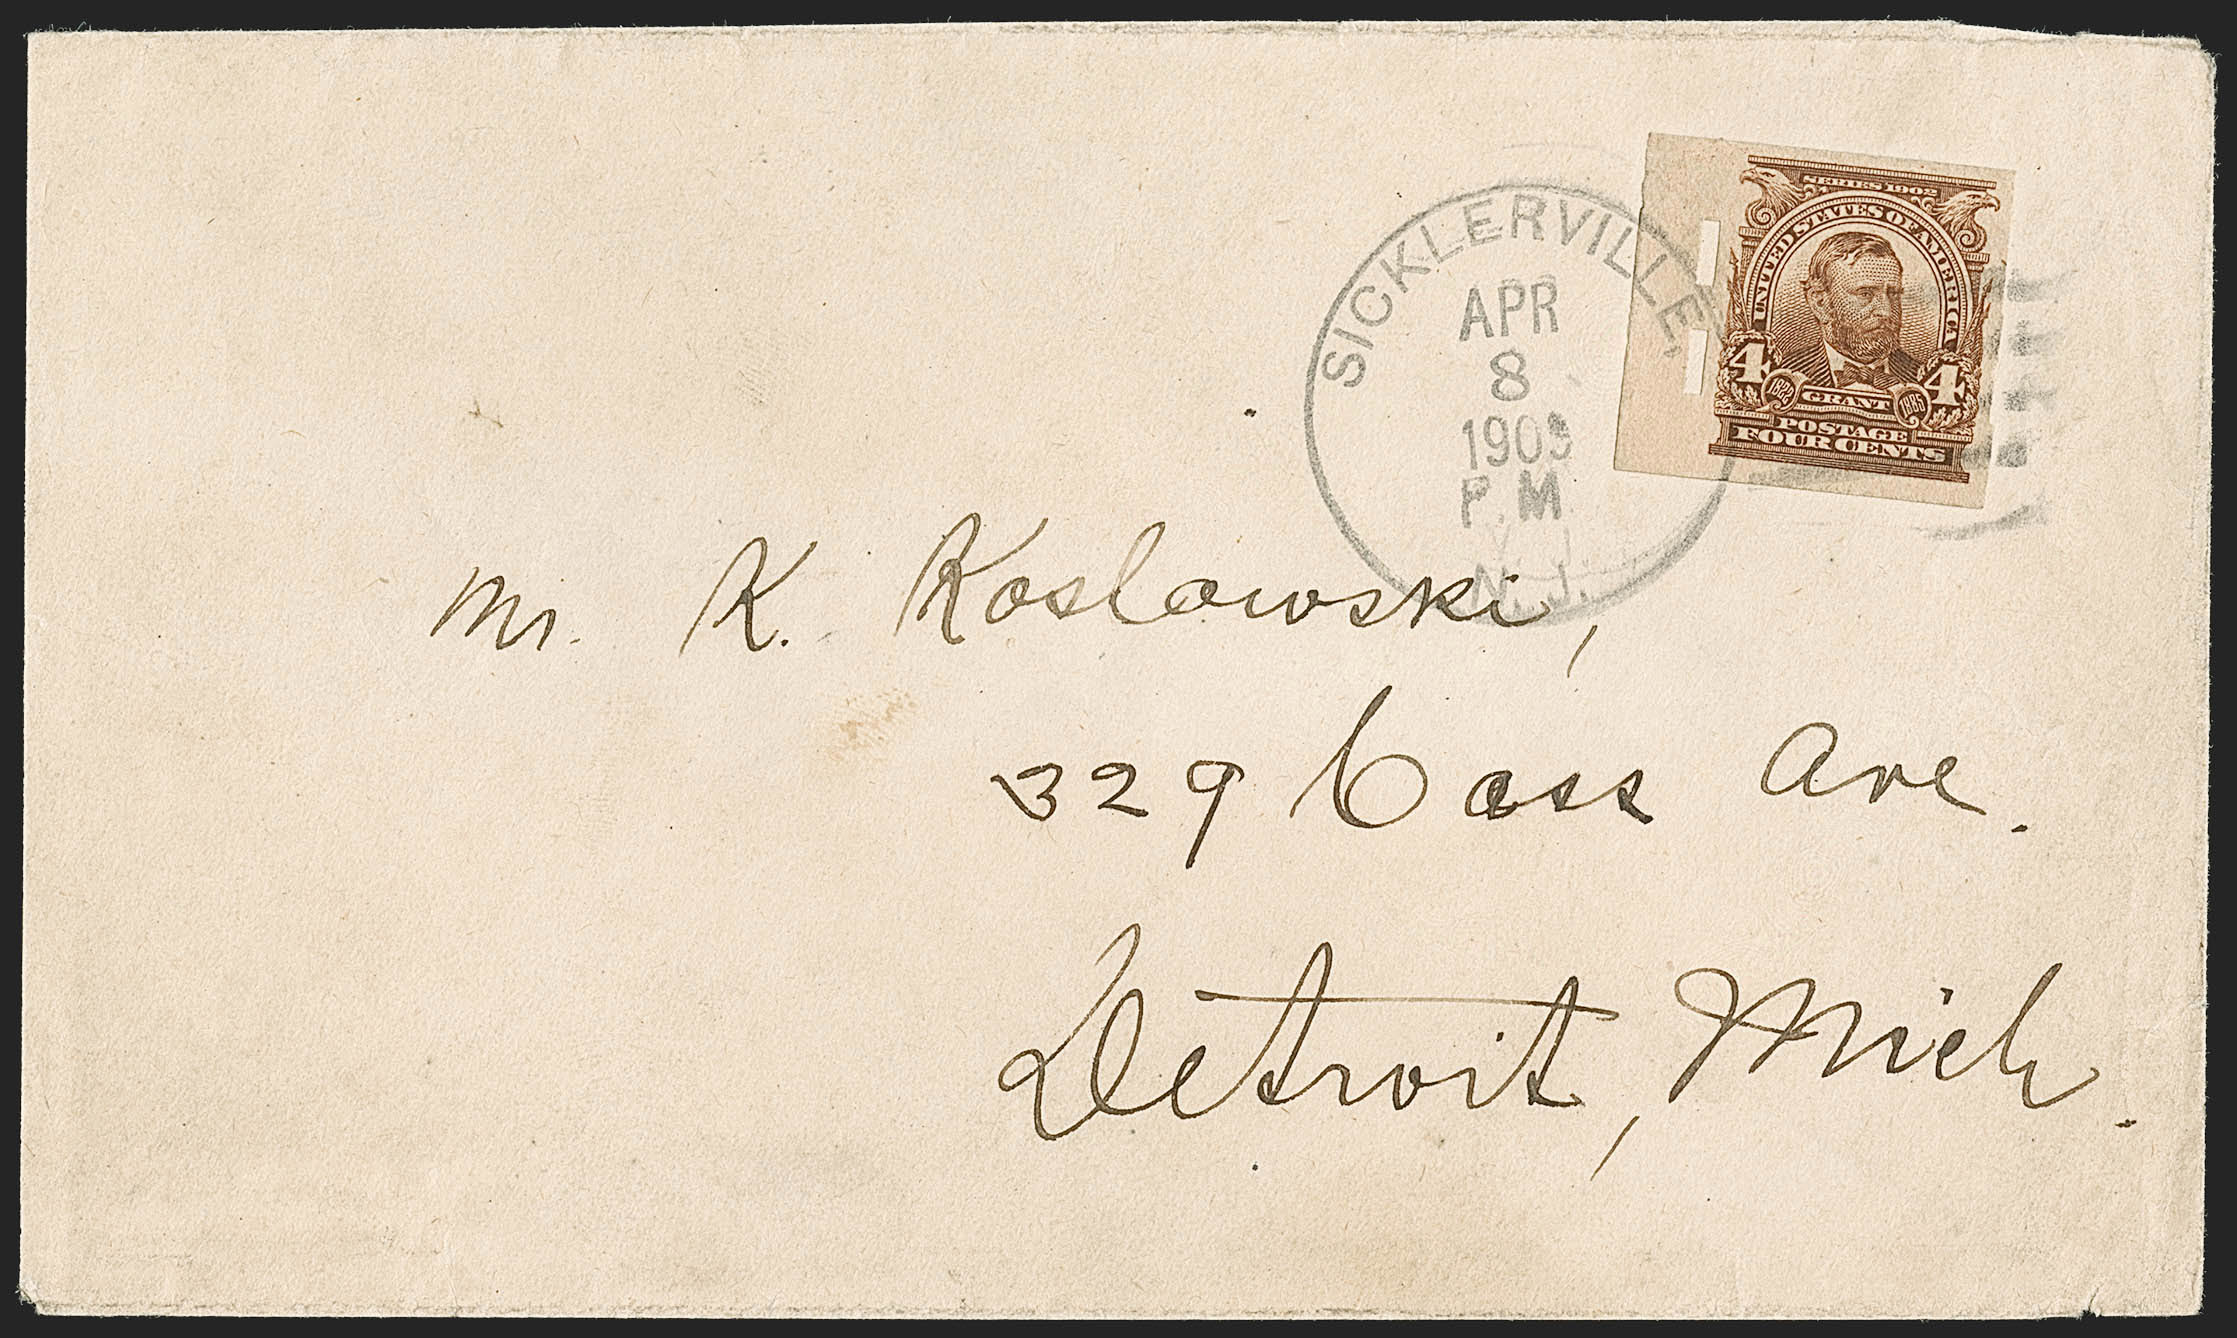 SICKLERVILLE,
APR
8
1909
P.M
N.J.
SERIES 1902
UNITED STATES OF AMERICA
4 1822 GRANT 1885 4
POSTAGE
FOUR CENTS
Mr. K. Koslowski,
329 Cass Ave.
Detroit, Mich.